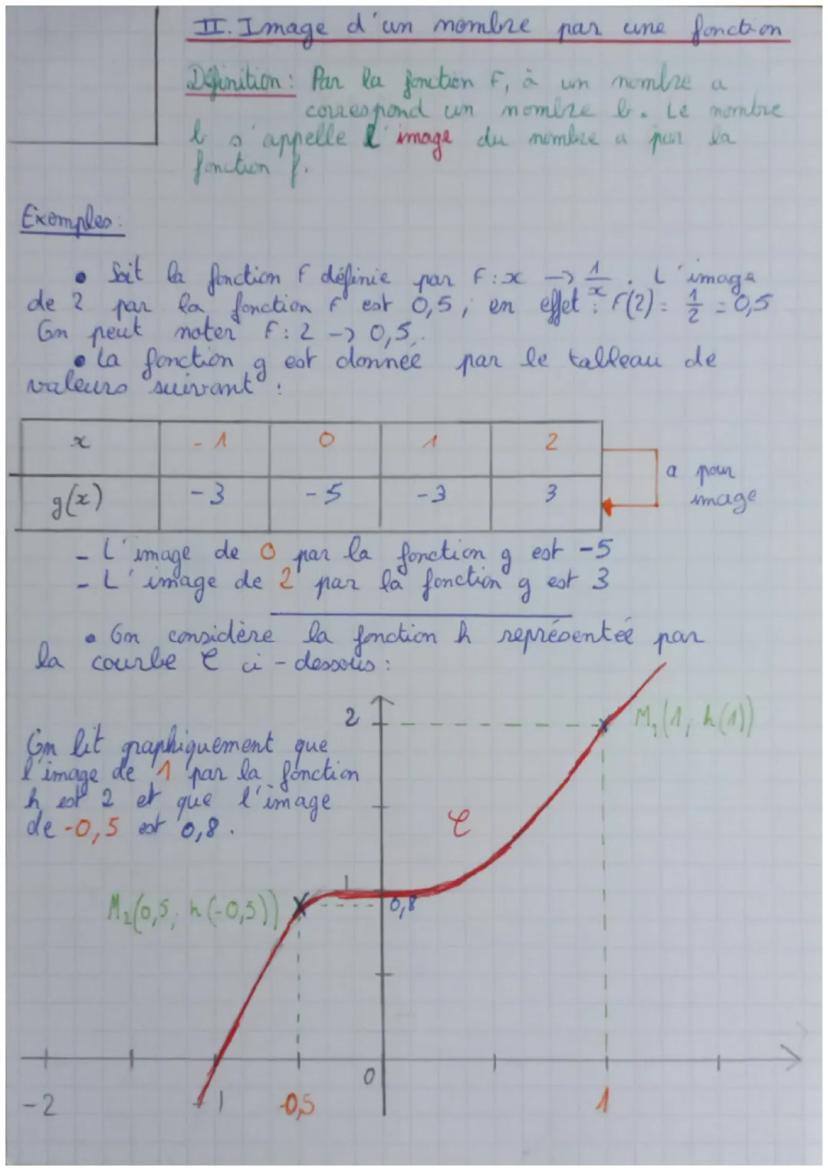 II. Image d'un nombre par une fonction
Définition: Par la fonction F, à un nombre a
correspond un nombre b. Le nombre
b s'appelle l'image du nombre a par la
fonction f.
Exemples:
• Soit la fonction F définie par F: x → 1/x. L'image
de 2 par la fonction F est 0,5, en effet : F(2) = 1/2 = 0,5
On peut noter F: 2 → 0,5.
• La fonction g est donnée par le tableau de
valeurs suivant :
x -1 0 1 2
g(x) -3 -5 -3 3
a pour
image
- L'image de 0 par la fonction g est -5
- L'image de 2 par la fonction g est 3
• On considère la fonction h représentée par
la courbe C ci-dessous :
2
M₁(1, h(1))
On lit graphiquement que
l'image de 1 par la fonction
h est 2 et que l'image
de -0,5 est 0,8.
C
1
M₂(0,5, h(-0,5))
0,8
0
-2 -1 -0,5 1